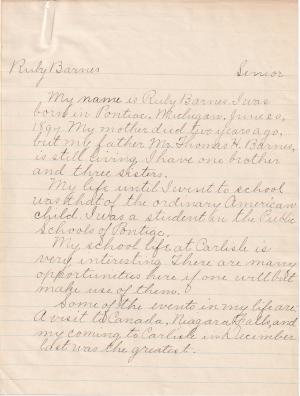 Ruby Barnes Senior
My name is Ruby Barnes. I was
born in Pontiac, Michigan, June 20,
189. My mother died two years ago,
but my father Mr. Thomas H. Barnes,
is still living. I have one brother
and three sisters.
My life until I went to school
was that of the ordinary American
child. I was a student in the Public
Schools of Pontiac.
My school life at Carlisle is
very interesting. There are many
opportunities here if one will but
make use of them.
Some of the events in my life are
A visit to Canada, Niagara Falls, and
my coming to Carlisle in December
last was the greatest.